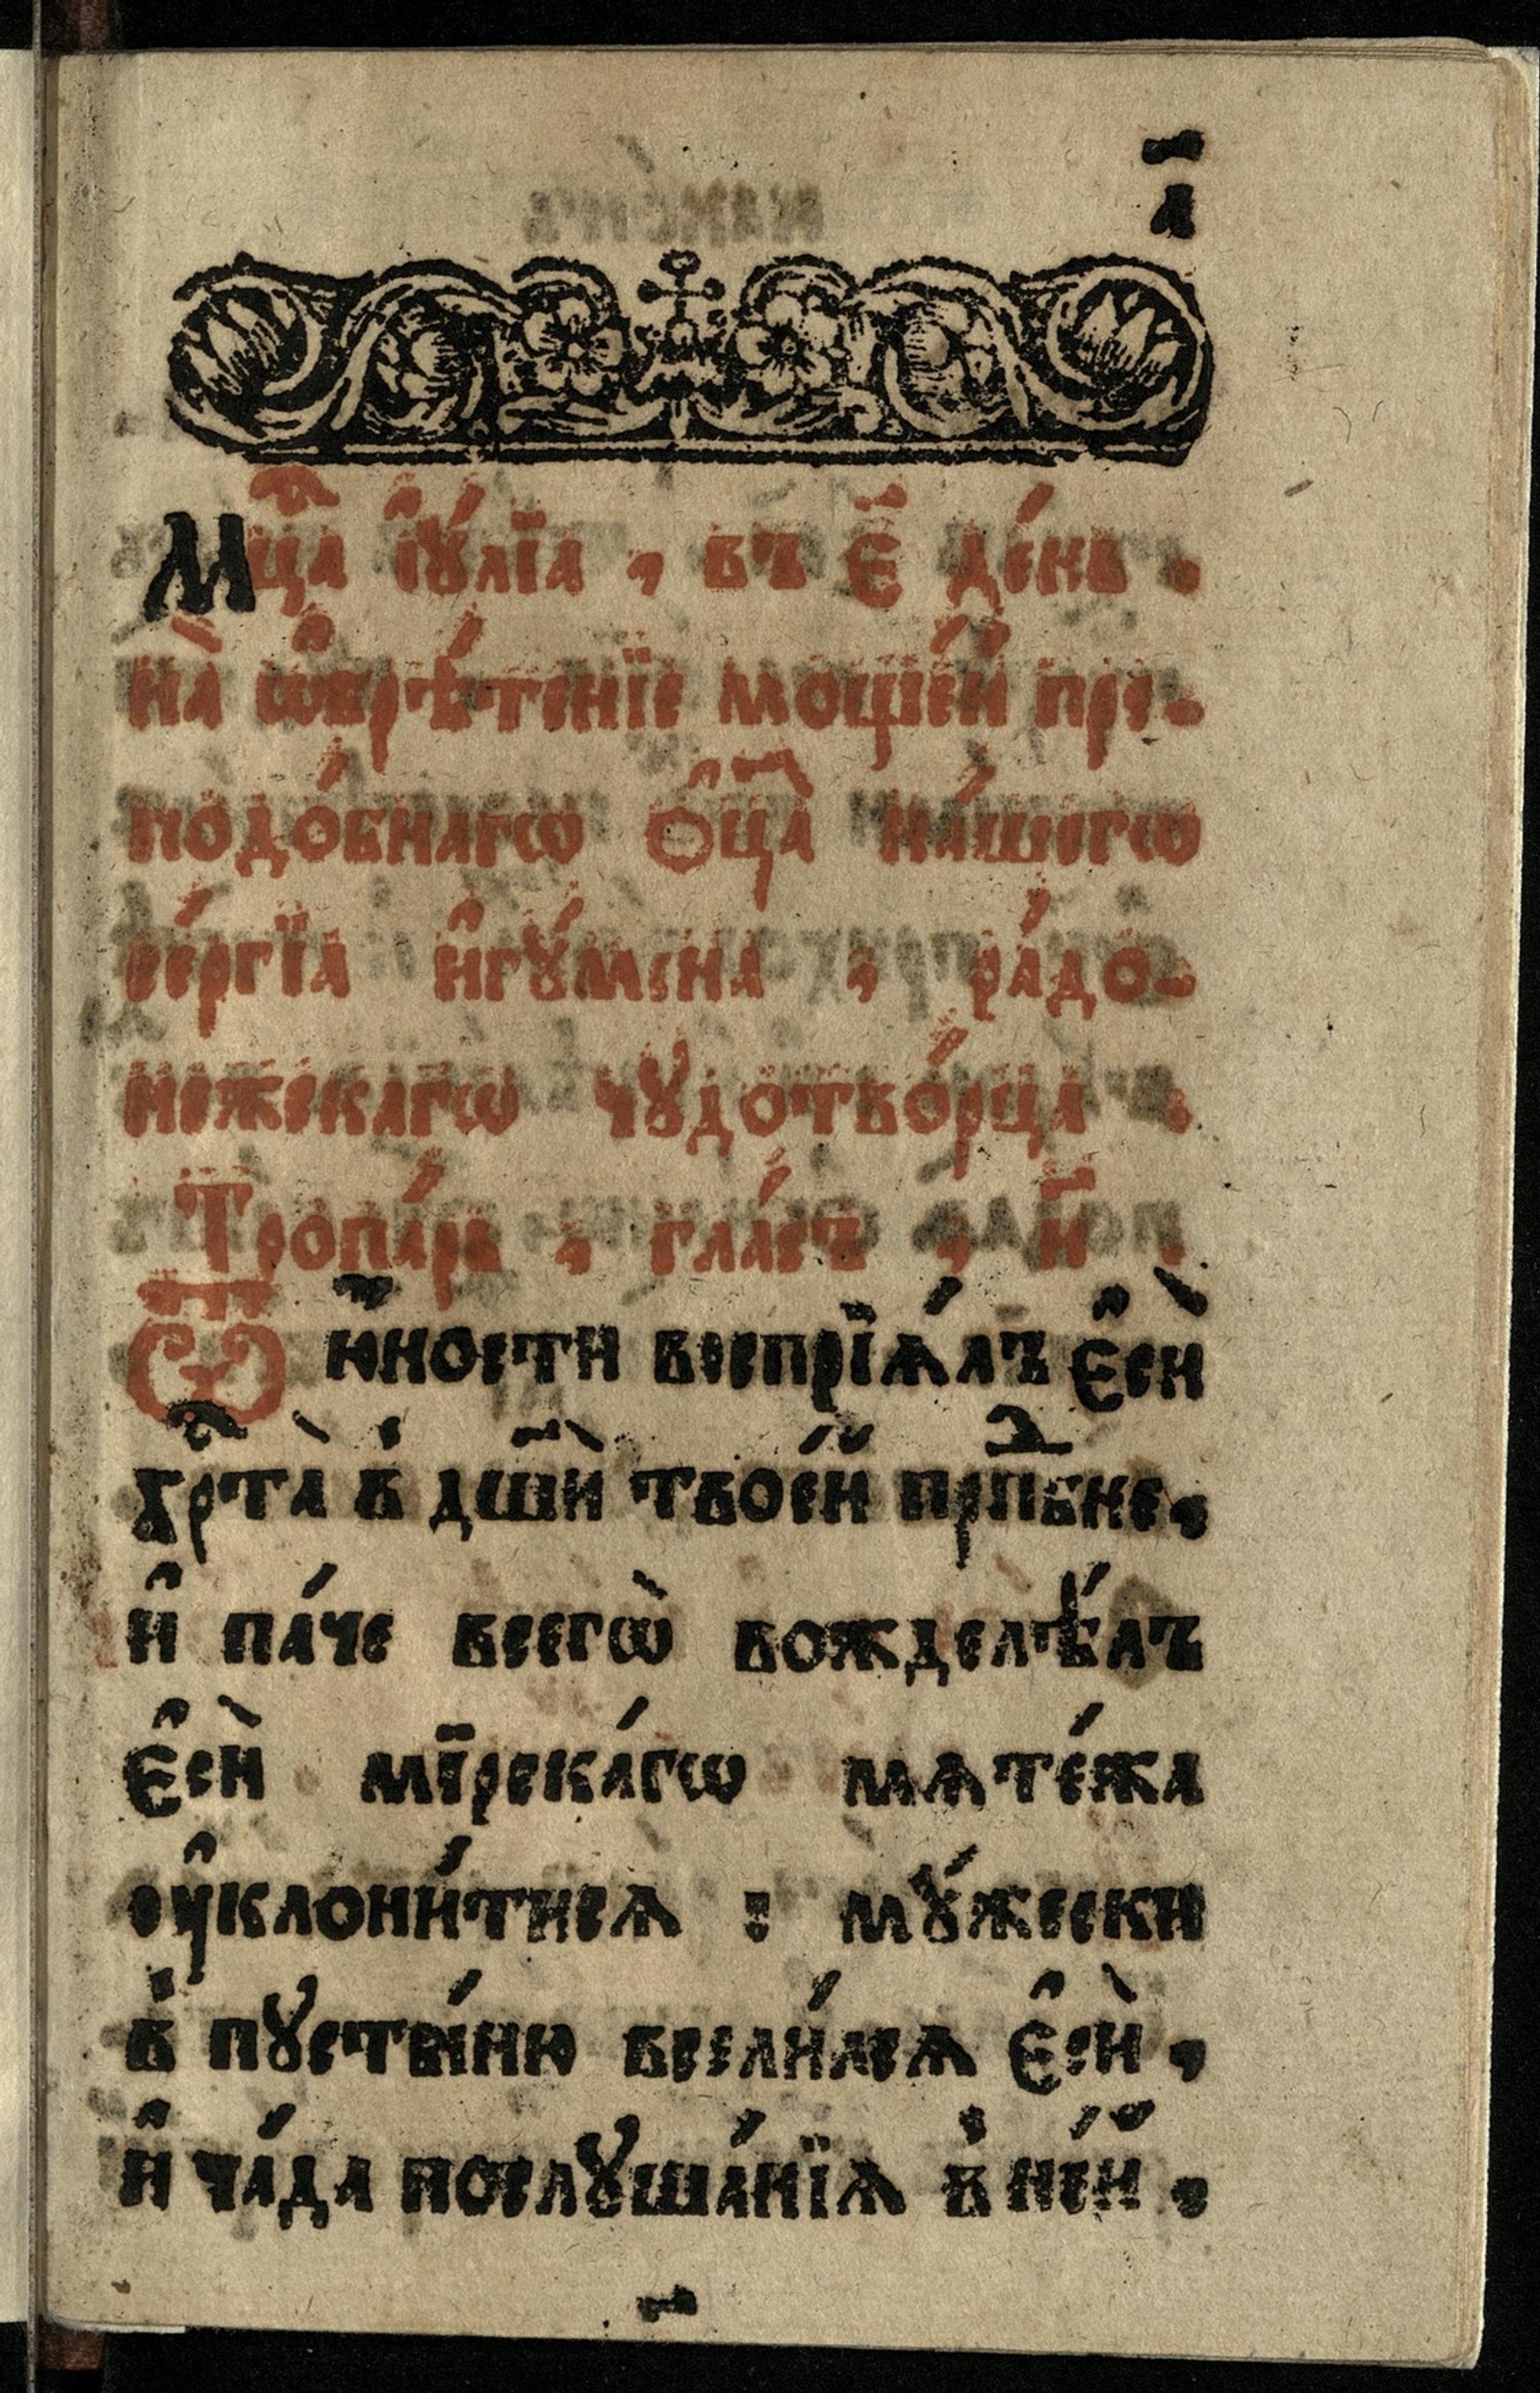 а҃
Мцⷭ҇а і҆ꙋ́лїа , въ є҃ де́нь .
на̀ ѡ҆брѣ́тенїе моще́й пре-
подо́бнагѡ ѻ҆ц҃а̀ на́шегѡ
се́ргїа и҆гꙋ́мена , ра́до-
нежскагѡ чꙋдотво́рца .
Тропа́рь , гла́съ , и҃ .
Ѿ ю҆́ности воспрїѧ́лъ є҆сѝ
хрⷭ҇та̀ в̾ дш҃ѝ твое́й прпⷣбне ,
и҆ па́че всегѡ̀ вожделѣ́лъ
є҆сѝ мїрска́гѡ мѧте́жа
ᲂу҆клони́тисѧ : мꙋ́жески
в̾ пꙋсты́ню всели́лсѧ є҆сѝ ,
и҆ ча́да послꙋша́нїѧ в̾ не́й ,